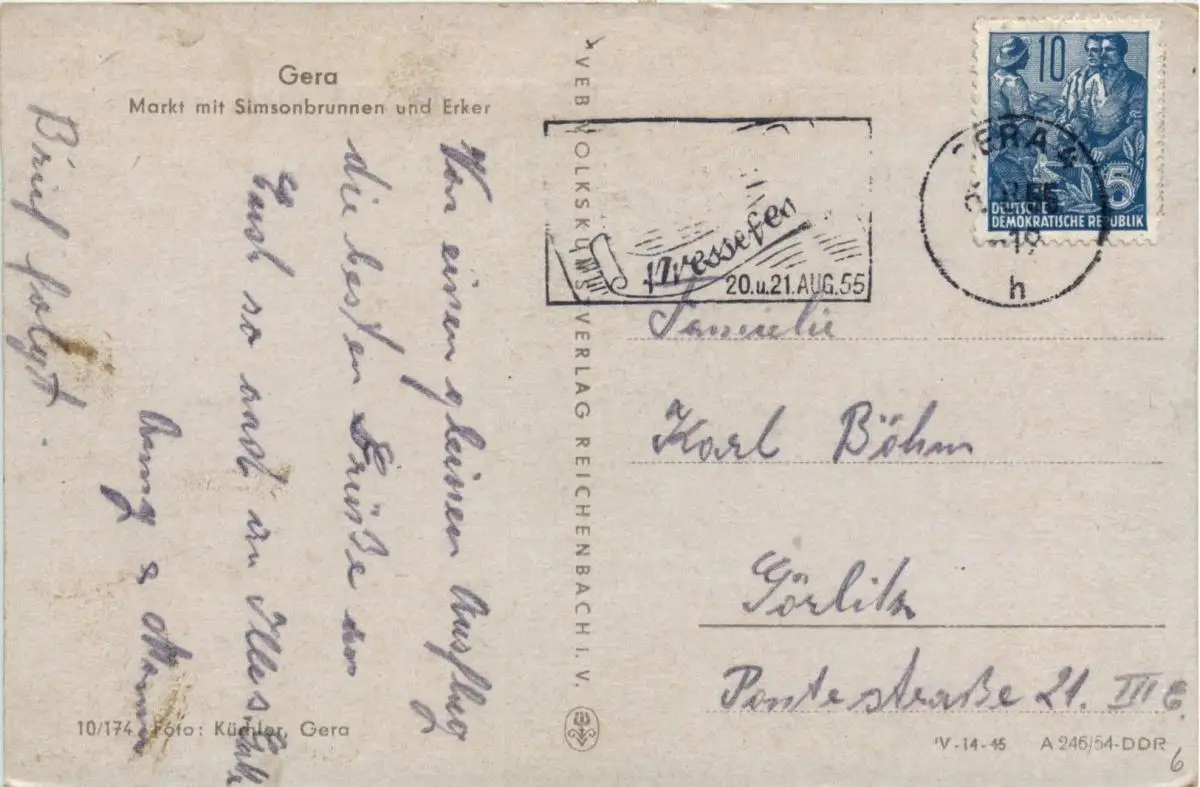 Gera
Markt mit Simsonbrunnen und Erker
Brief folgt.
Von einem kleinen Ausflug
die besten Grüße an
Euch so auch an
&
VEB VOLKSKUNSTVERLAG REICHENBACH I. V.
10/174 Foto: Küchler, Gera
Pressefest
20. u. 21. AUG. 55
10
5
DEUTSCHE
DEMOKRATISCHE REPUBLIK
GERA 4
55
-19
h
Familie
Karl Böhm
Görlitz
Pontestraße 21. III
V-14-45 A 246/54-DDR
6